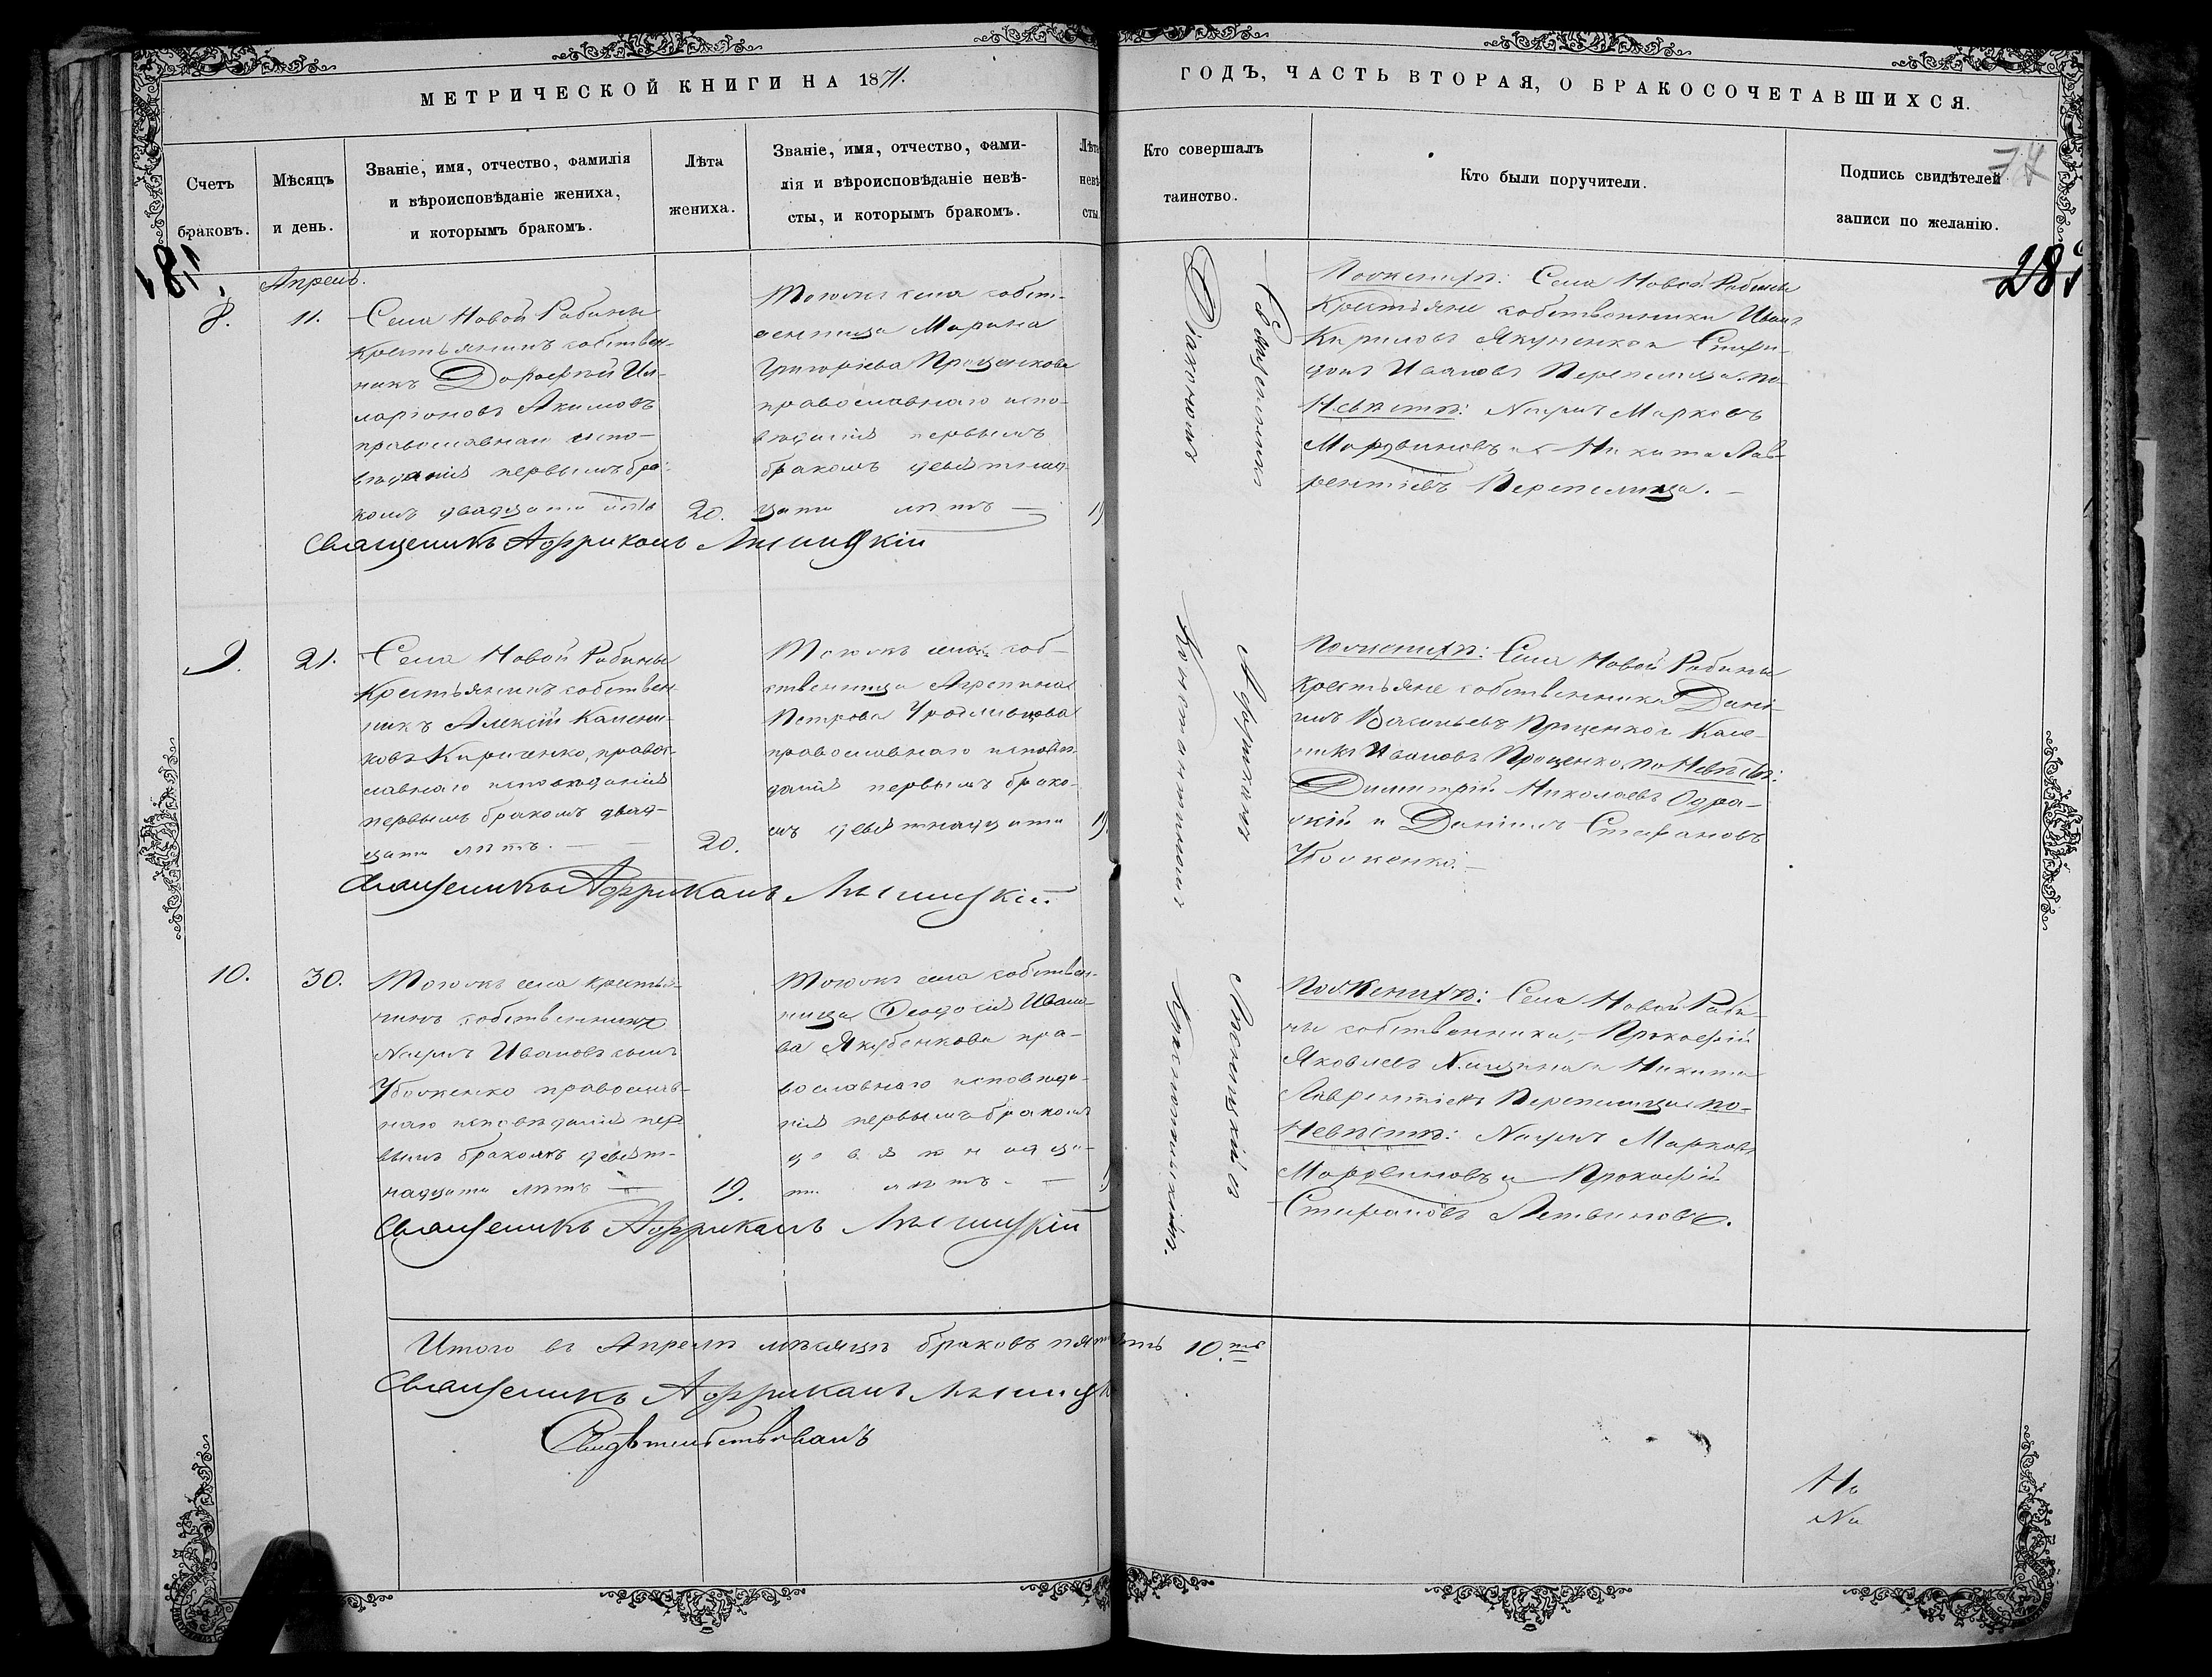 МЕТРИЧЕСКОЙ КНИГИ НА 1871.
ГОДЪ, ЧАСТЬ ВТОРАЯ, О БРАКОСОЧЕТАВШИХСЯ.
Счетъ
браковъ.
Мѣсяцъ
и день.
Званіе, имя, отчество, фамилія
и вѣроисповѣданіе жениха,
и которымъ бракомъ.
Лѣта
жениха.
Званіе, имя, отчество, фами-
лія и вѣроисповѣданіе невѣ-
сты, и которымъ бракомъ.
Лѣта
невѣ-
сты.
Кто совершалъ
таинство.
Кто были поручители.
Подпись свидѣтелей
записи по желанію.
Апрель.
8.
11.
Села Новой Рабины
крестьянинъ собствен-
никъ Дорофей Ил-
ларіоновъ Акимовъ
православнаго испо-
вѣданія первымъ бра-
комъ двадцати лѣтъ
20.
Тогожъ села собст-
венница Марина
Григоріева Проценкова
православнаго испо-
вѣданія первымъ
бракомъ девятнад-
цати лѣтъ
19
Священникъ Аффриканъ Лысицкій
По женихѣ: Села Новой Рабины
крестьяне собственники Иванъ
Кириловъ Якуненко и Спири-
донъ Ивановъ Перепелица. по
Невѣстѣ: Наумъ Марковъ
Мордвиновъ и Никита Лав-
рентіевъ Перепелица.
9.
21.
Села Новой Рабины
крестьянинъ собствен-
никъ Алексѣй Калени-
ковъ Кириченко, правос-
лавнаго исповѣданія
первымъ бракомъ двад-
цати лѣтъ.
20.
Тогожъ села соб-
ственница Агрепина
Петрова Уродливцова
православнаго исповѣ-
данія первымъ брако-
мъ девятнадцати
19.
Священникъ Аффриканъ Лысицкій
По женихѣ: Села Новой Рабины
крестьяне собственники Дані-
илъ Васильевъ Проценко и Кале-
никъ Ивановъ Проценко, по Невѣстѣ:
Димитрій Николаевъ
и Даніилъ Стефановъ
Убоженко.
10.
30.
Тогожъ села крестья-
нинъ собственникъ
Наумъ Ивановъ сынъ
Убоженко православ-
наго исповѣданія пер-
вымъ бракомъ девят-
надцати лѣтъ
19.
Тогожъ села собствен-
ница Ѳеодосія Ивано-
ва Якубенкова пра-
вославнаго исповѣда-
нія первымъ бракомъ
девятнадца-
ти лѣтъ.
Священникъ Аффриканъ Лысицкій
По женихѣ: Села Новой Раби-
ны собственники, Прокофій
Яковлевъ и Никита
Лаврентіевъ Перепелица по
Невѣстѣ: Наумъ Марковъ
Мордвиновъ и Прокофій
Стефановъ Летвиновъ.
Священникъ Аффриканъ Лысицкій съ
Діакономъ Константиномъ
Итого въ Апрелѣ мѣсяцѣ браковъ 10.ть
Священникъ Аффриканъ Лысицк
Свидѣтельствовалъ